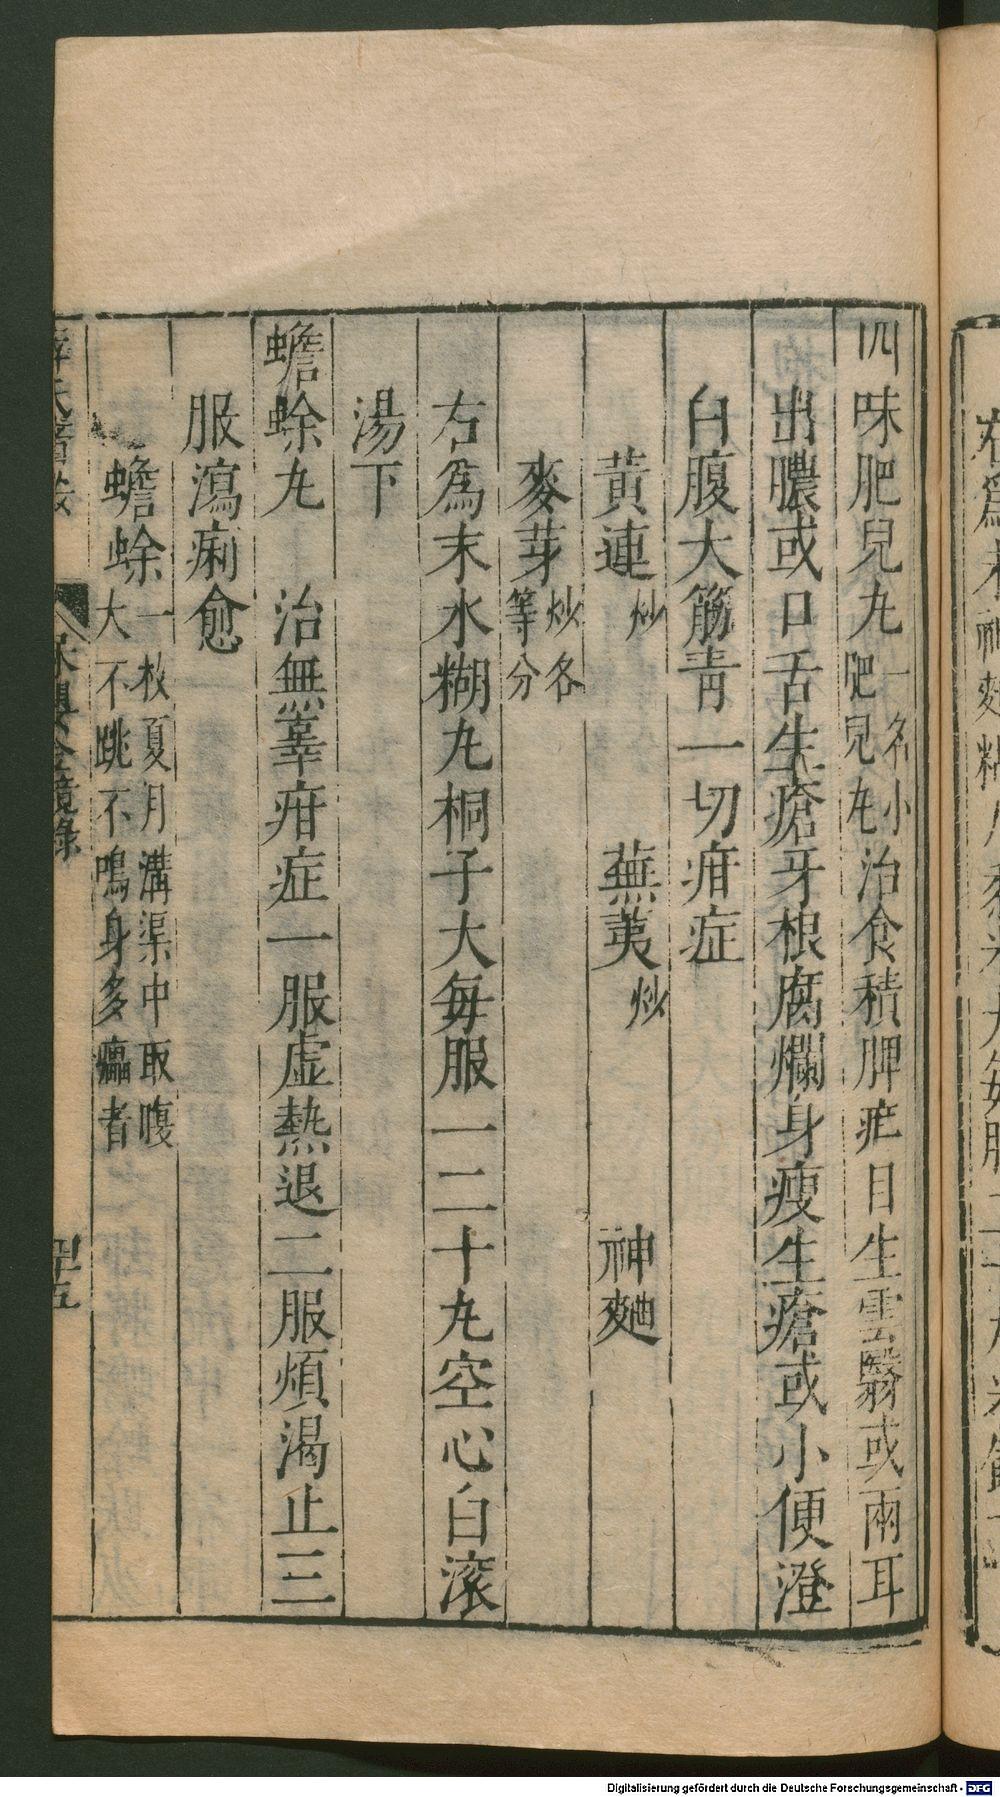 四味肥兒丸一名小肥兒丸治食積脾疳目生雲翳或兩耳
出膿或口舌生瘡牙根腐爛身瘦生瘡或小便澄
白腹大筋青一切疳症
黃連炒 蕪荑炒 神麯
麥芽炒各等分
右爲末水糊丸桐子大每服一二十丸空心白滚
湯下
蟾蜍丸 治無辜疳症一服虛熱退二服煩渴止三
服瀉痢愈
蟾蜍一枚夏月溝渠中取腹大不跳不鳴身多癟者
薛氏醫按 保嬰金鏡錄 四五
Digitalisierung gefördert durch die Deutsche Forschungsgemeinschaft - DFG